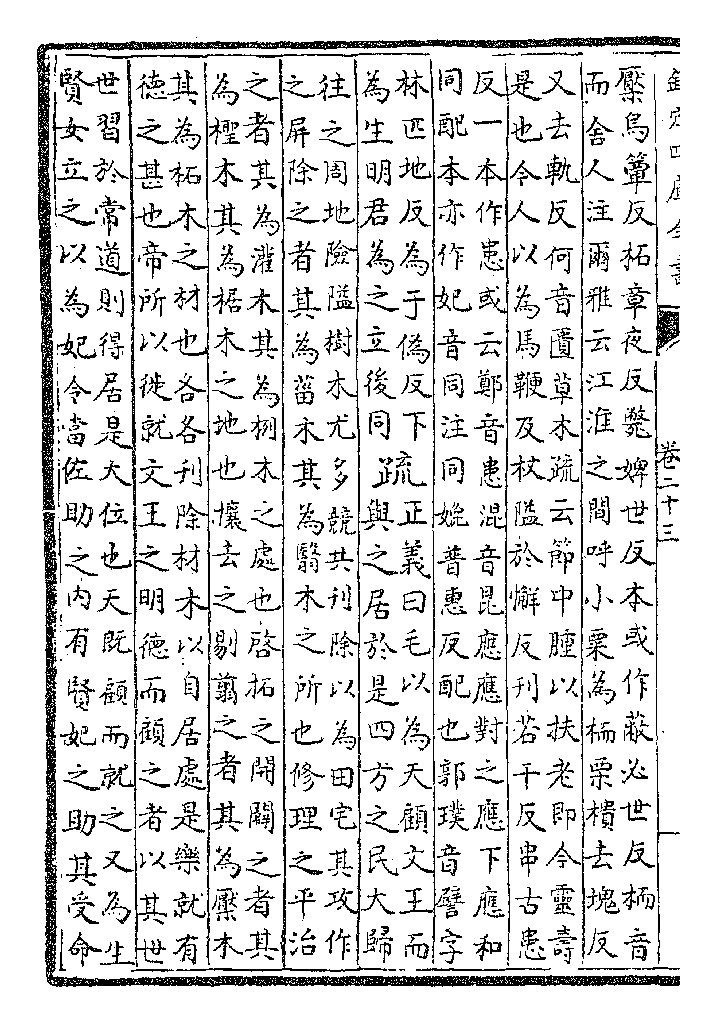 欽定四庫全書
卷二十三
檿烏簟反柘章夜反斃婢世反本或作蔽必世反栭音
而舍人注爾雅云江淮之間呼小栗為栭栗樻去塊反
又去軌反何音匱草木疏云節中腫以扶老即今靈壽
是也今人以為馬鞭及杖隘於懈反刋若干反串古患
反一本作患或云鄭音患混音昆應應對之應下應和
同配本亦作妃音同注同媲普惠反配也郭璞音譬字
林匹地反為于偽反下
為生明君為之立後同
疏
正義曰毛以為天顧文王而
與之居於是四方之民大歸
往之周地險隘樹木尤多競共刋除以為田宅其攻作
之屏除之者其為菑木其為翳木之所也修理之平治
之者其為灌木其為栵木之處也啓拓之開闢之者其
為檉木其為椐木之地也攘去之剔翦之者其為檿木
其為柘木之材也各各刋除材木以自居處是樂就有
德之甚也帝所以徙就文王之明德而顧之者以其世
世習於常道則得居是大位也天既顧而就之又為生
賢女立之以為妃令當佐助之内有賢妃之助其受命